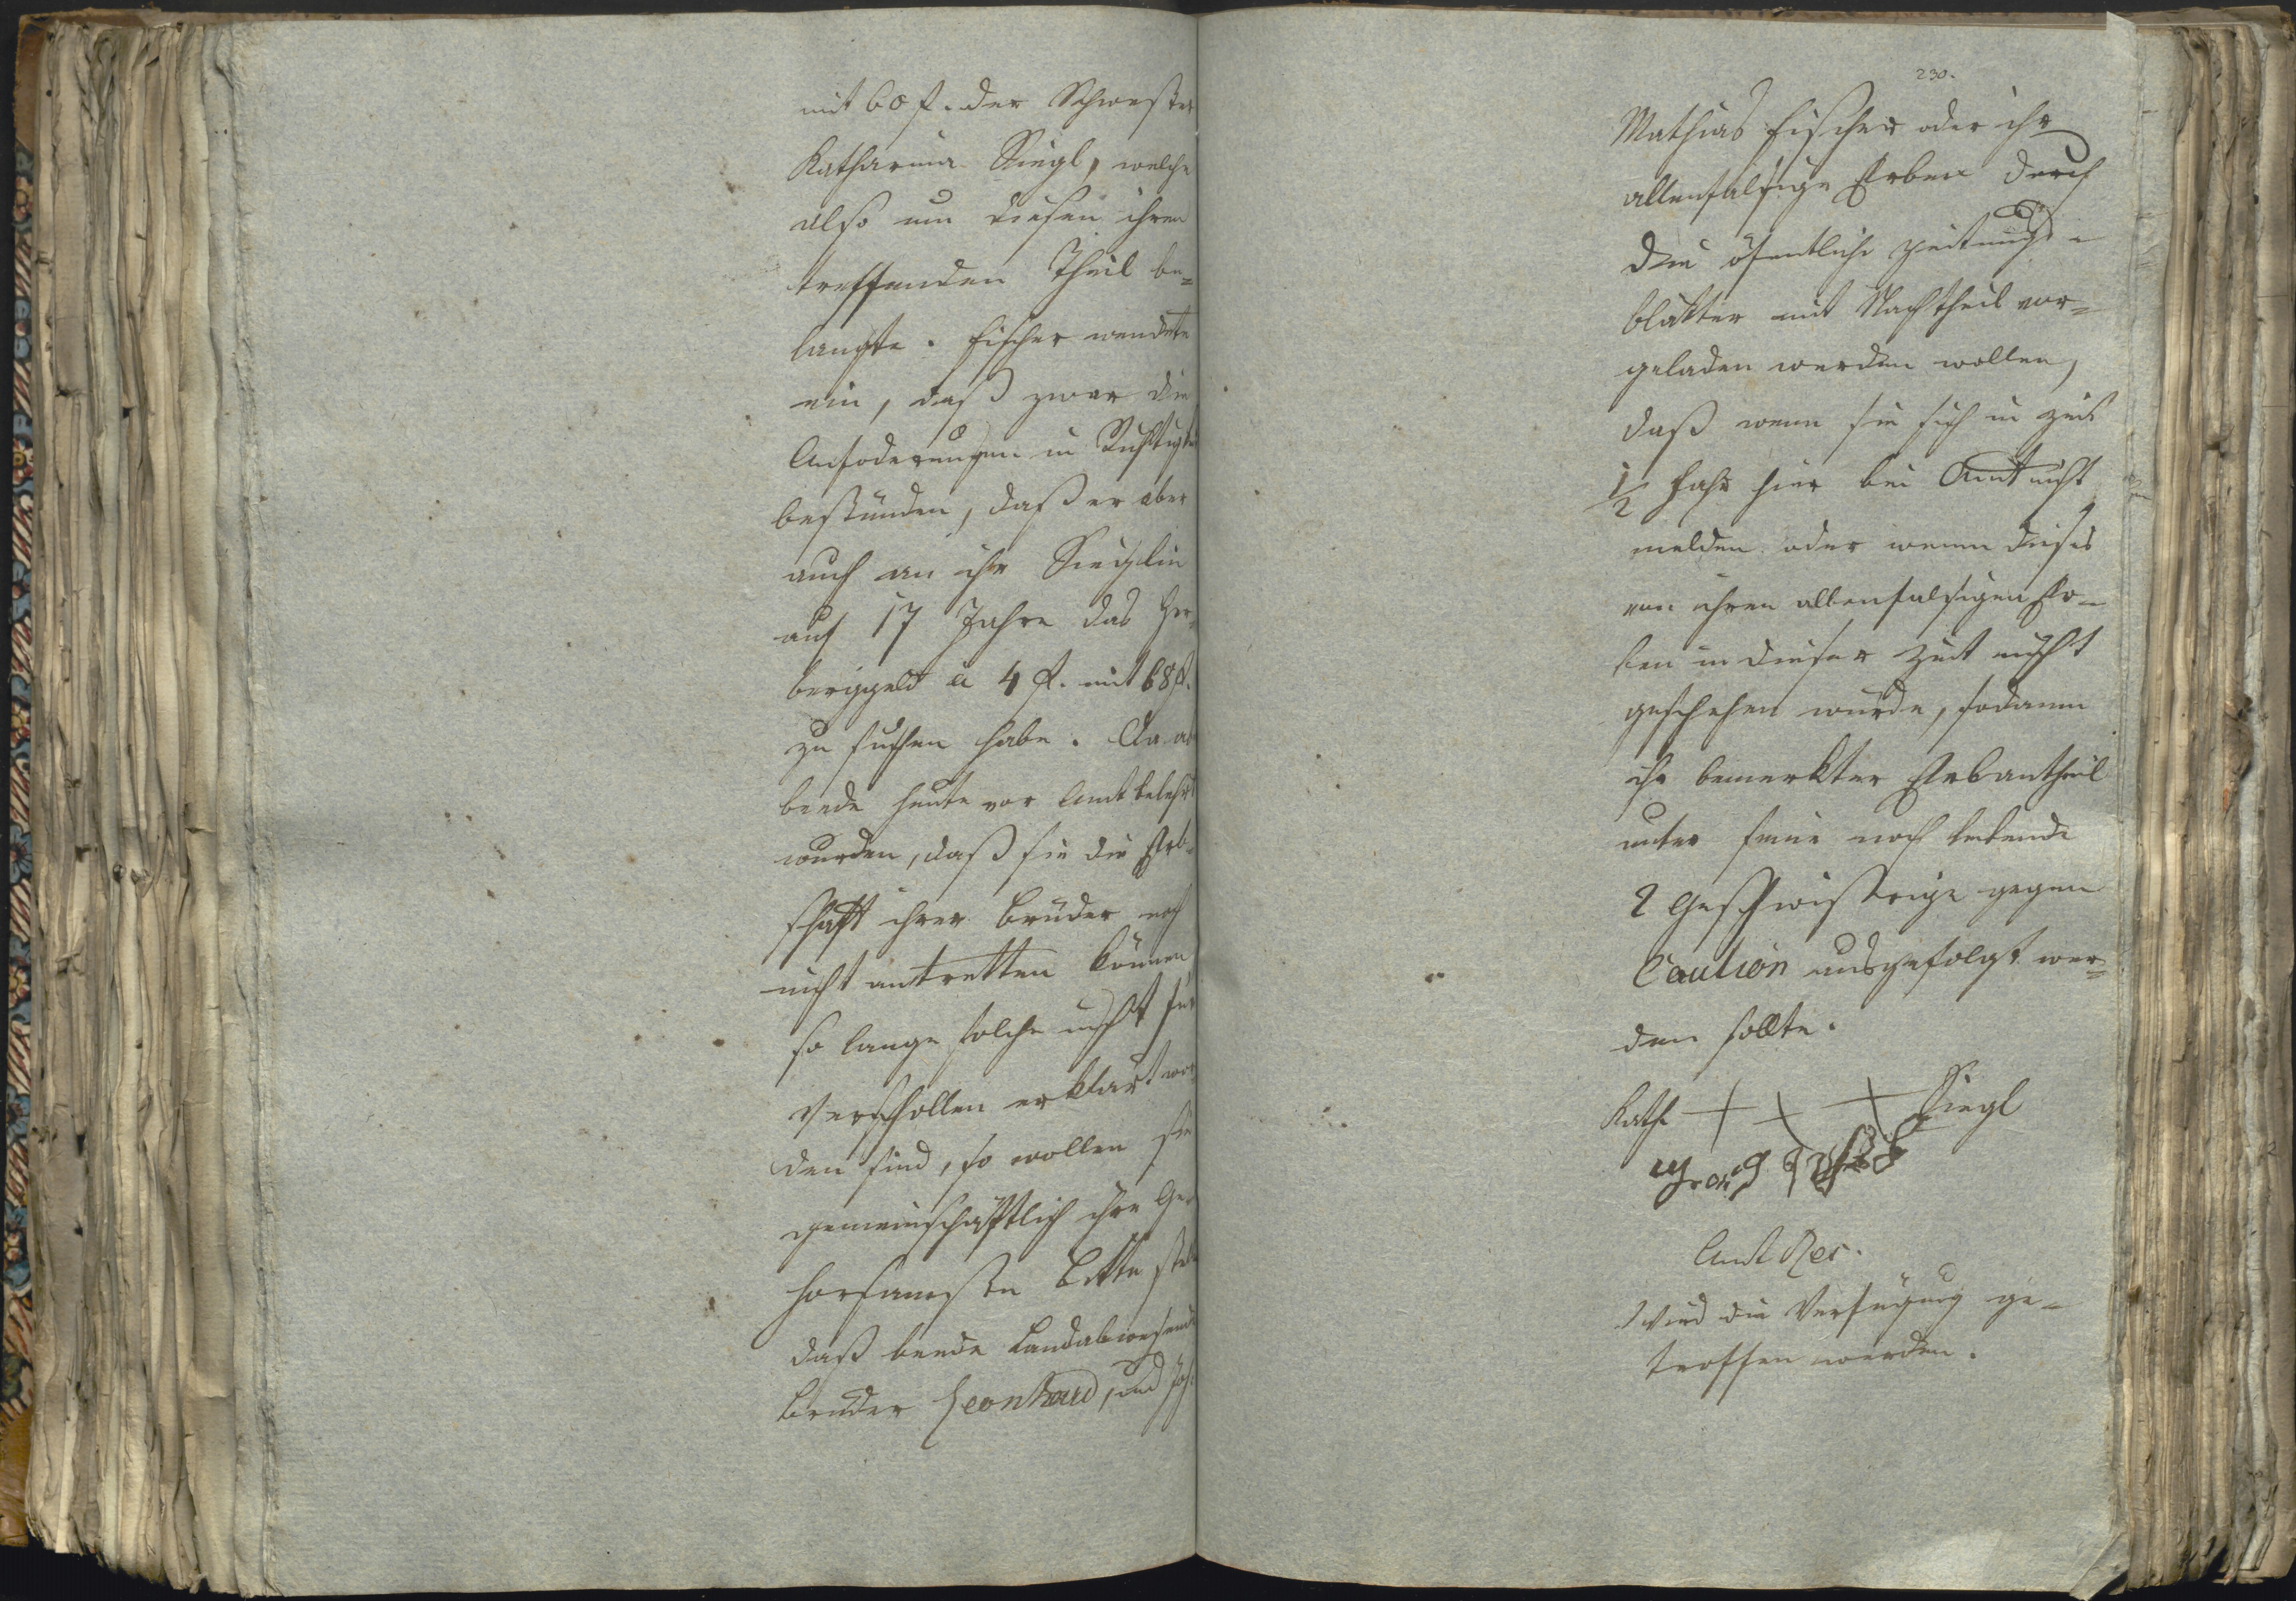 mit 60 f. der Schwester
Katharina Siegl, welche
also um diesen ihren
treffenden Theil be=
langte. Fischer wendete
ein, daß zwar die
Anfoderungen in Richtigkeit
bestünden, daß er aber
auch an ihr Sieglin
auf 17 Jahre das Her=
berggeld a 4 f. mit 68 f.
zu suchen habe. Da
beede heute vor Amt belehrt
wurden, daß sie die Erb=
schaft ihrer Brüder noch
nicht antretten können
so lange solche nicht für
Verschollen erklärt wor=
den sind, so wollen sie
gemeinschaftlich ihre Ge=
horsamste Bitte stellen
daß beede Landabwesende
Brüder Leonhard, und Joh:
230.
Mathias Fischer oder ihr
allenfalsige Erben durch
die öfentliche Zeitungs=
blätter mit Nachtheil vor=
geladen werden wollen,
daß wenn sie sich in Zeit
1/2 Jahr hier bei Amt nicht
melden oder wenn dieses
von ihren allenfalsigen Er=
ben in dieser Zeit nicht
geschehen würde, sodann
ihr bemerkter Erbantheil
unter seine noch lebende
2 Geschwistrige gegen
Caution ausgefolgt wer=
den sollte.
Kath + + + Siegl
Amt Res.
Wird die Verfügung ge=
troffen werden.